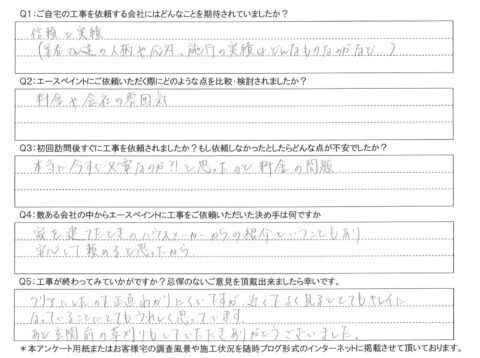 Q1:ご自宅の工事を依頼する会社にはどんなことを期待されていましたか?
信頼と実績
(業者さん達の人柄や応対、施行の実績はどんなものなのかなど…)
Q2:エースペイントにご依頼いただく際にどのような点を比較・検討されましたか?
料金や会社の雰囲気
Q3:初回訪問後すぐに工事を依頼されましたか?もし依頼しなかったとしたらどんな点が不安でしたか?
本当に今すぐ必要なのか?!と思ったのと料金の問題
Q4:数ある会社の中からエースペイントに工事をご依頼いただいた決め手は何ですか
家を建てたときのハウスメーカーからの紹介ということもあり
安心して頼めると思ったから
Q5:工事が終わってみていかがですか?忌憚のないご意見を頂戴出来ましたら幸いです。
クリアにしたので正直わかりにくいですが、近くでよく見るととてもキレイに
なっていることにとてもうれしく思っています。
あと玄関前の草刈りもしていただきありがとうございました。
*本アンケート用紙またはお客様宅の調査風景や施工状況を随時ブログ形式のインターネットに掲載させて頂いております。